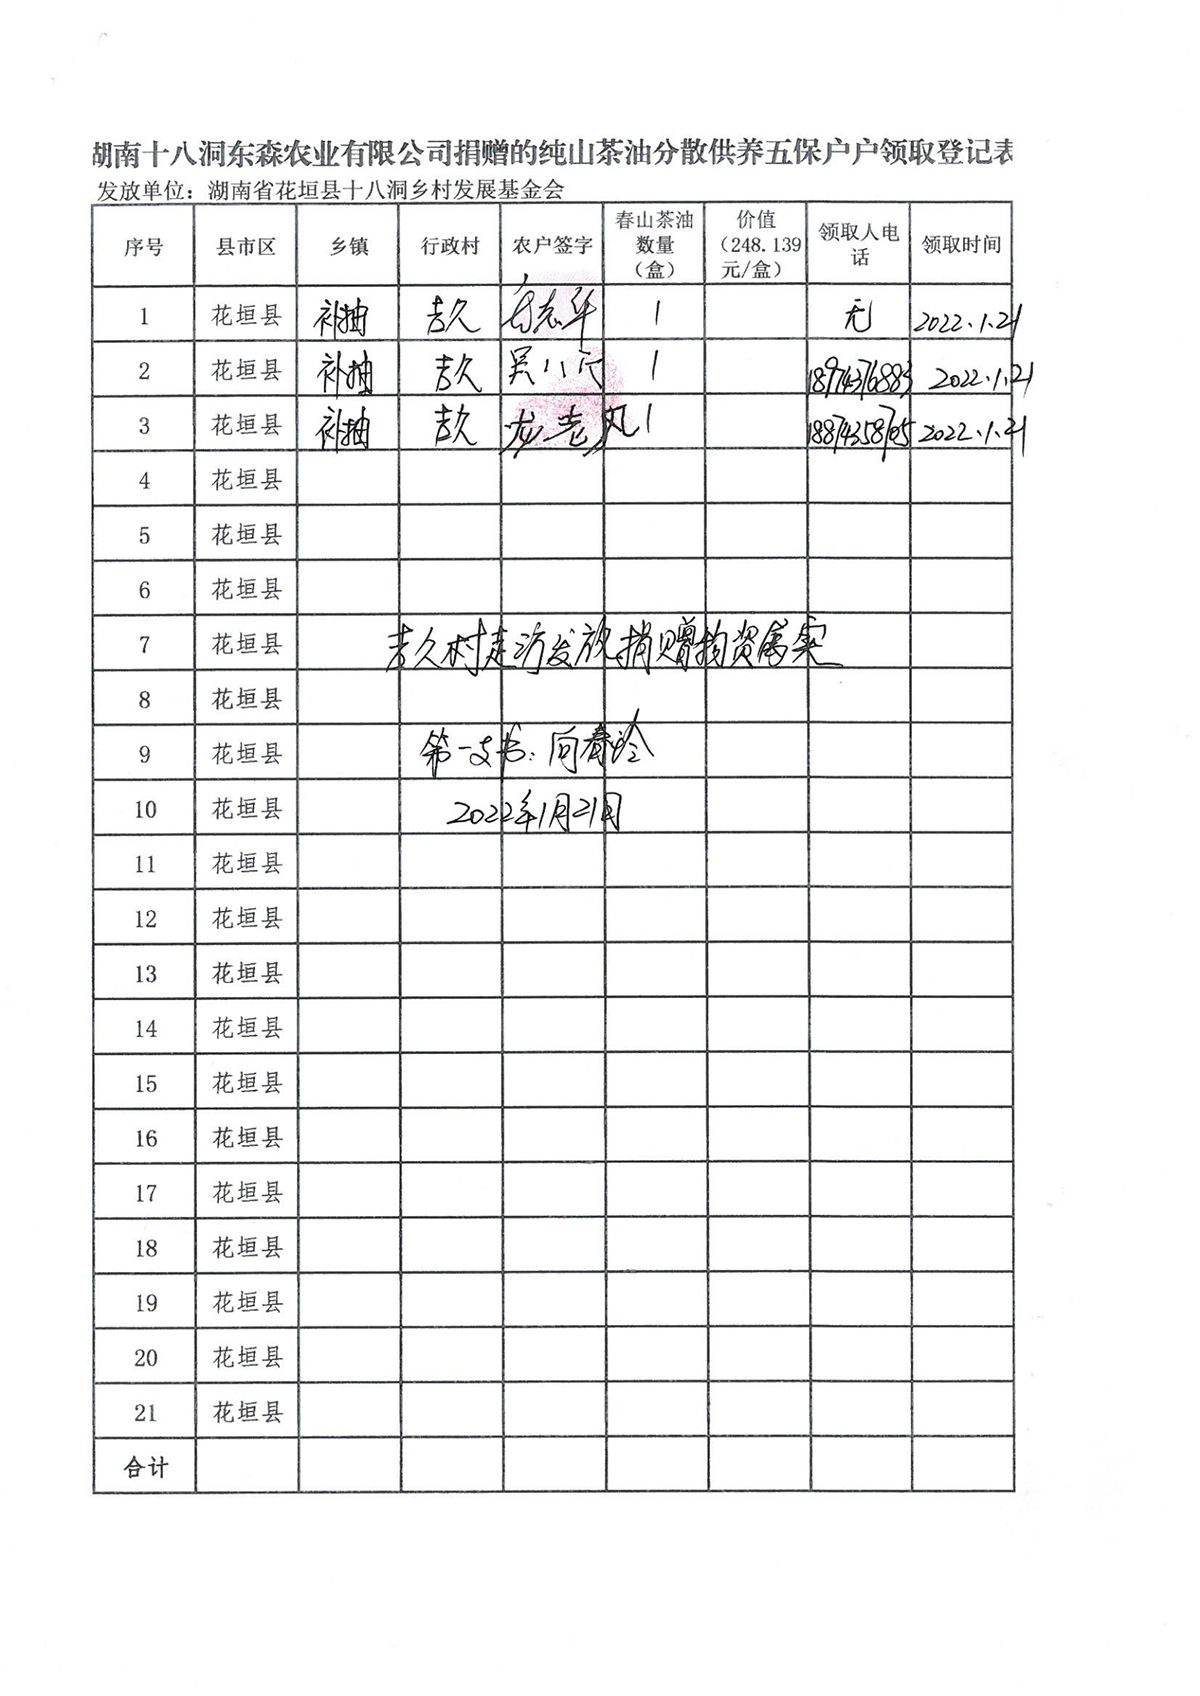 湖南十八洞东森农业有限公司捐赠的纯山茶油分散供养五保户户领取登记表
发放单位：湖南省花垣县十八洞乡村发展基金会
序号 县市区 乡镇 行政村 农户签字 春山茶油数量（盒） 价值（248.139元/盒） 领取人电话 领取时间
1 花垣县 补抽 吉久 志华 1 无 2022.1.21
2 花垣县 补抽 吉久 吴八 1 18974376883 2022.1.21
3 花垣县 补抽 吉久 龙老凤 1 18874358705 2022.1.21
4 花垣县
5 花垣县
6 花垣县
7 花垣县 吉久村走访发放捐赠物资属实
8 花垣县
9 花垣县 第一支书：向春玲
10 花垣县 2022年1月21日
11 花垣县
12 花垣县
13 花垣县
14 花垣县
15 花垣县
16 花垣县
17 花垣县
18 花垣县
19 花垣县
20 花垣县
21 花垣县
合计